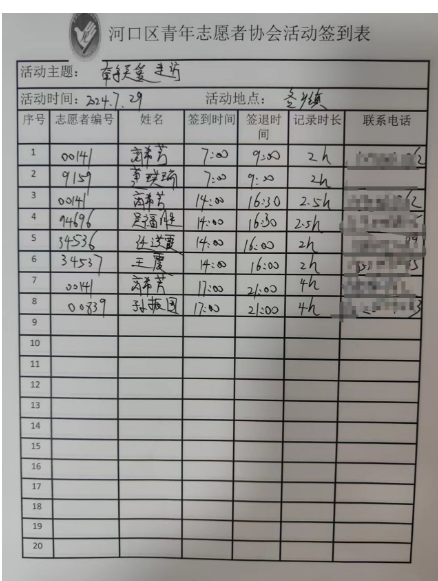 河口区青年志愿者协会活动签到表
活动主题： 走访
活动时间：2024.7.29 活动地点：
序号 志愿者编号 姓名 签到时间 签退时间 记录时长 联系电话
1 00141 7:00 9:00 2h
2 9159 7:00 9:00 2h
3 00141 14:00 16:30 2.5h
4 94696 14:00 16:30 2.5h
5 34536 14:00 16:00 2h
6 34537 王震 14:00 16:00 2h
7 00141 17:00 21:00 4h
8 00839 孙振国 17:00 21:00 4h
9
10
11
12
13
14
15
16
17
18
19
20